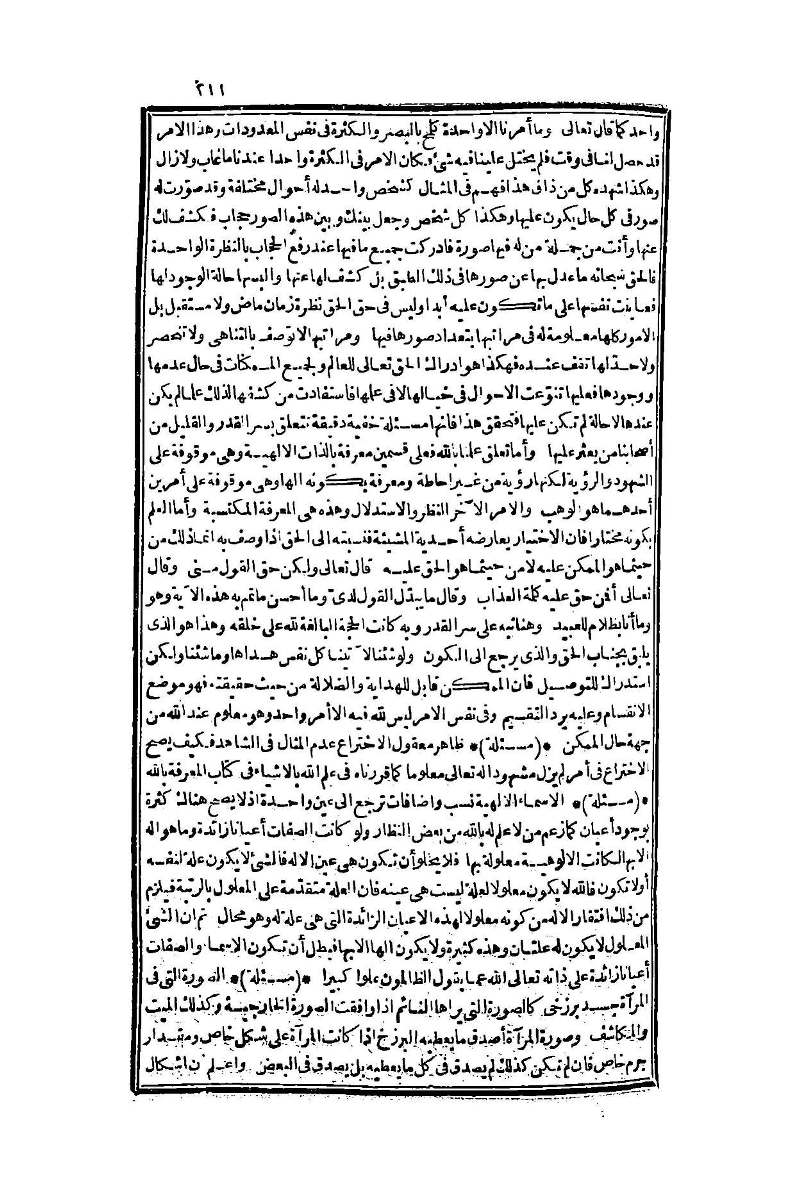 ٢١١
واحد كما قال تعالى وما أمرنا الا واحدة كلمح بالبصر والكثرة فى نفس المعدودات وهذا الامر
قد حصل لنا فى وقت فلم يختل علينا فيه شئ وكان الامر فى الكثرة واحدا عندنا ما غاب ولا زال
وهكذا شهده كل من ذاق هذا فهم فى المثال كشخص واحد له أحوال مختلفة وقد صوّرت له
صور فى كل حال يكون عليها وهكذا كل شخص وجعل بينك وبين هذه الصور حجاب فكشف لك
عنها وأنت من جملة من له فيها صورة فادركت جميع ما فيها عند رفع الحجاب بالنظرة الواحدة
فالحق سبحانه ما عدل بها عن صورها فى ذلك الطبق بل كشف لها عنها والبسها حالة الوجود لها
فعاينت نفسها على ما تكون عليه أبدا وليس فى حق الحق نظرة زمان ماض ولا مستقبل بل
الامور كلها معلومة له فى مراتبها بتعداد صورها فيها ومراتبها لا توصف بالتناهى ولا تنحصر
ولا حد لها تقف عنده فهكذا هو ادراك الحق تعالى للعالم ولجميع الممكنات فى حال عدمها
ووجودها فعليها تنوّعت الاحوال فى خيالها لا فى علمها فاستفادت من كشفها لذلك علما لم يكن
عندها لا حالة لم تكن عليها فتحقق هذا فانها مسئلة خفية دقيقة تتعلق بسر القدر والقليل من
أصحابنا من يعثر عليها وأما تعلق علمنا بالله فعلى قسمين معرفة بالذات الالهية وهى موقوفة على
الشهود والرؤية لكنها رؤية من غير احاطة ومعرفة بكونه الها وهى موقوفة على أمرين
أحدهما هو الوهب والامر الآخر النظر والاستدلال وهذه هى المعرفة المكتسبة وأما العلم
بكونه مختارا فان الاختيار يعارضه أحدية المشيئة فنسبته الى الحق اذا وصف به انما ذلك من
حيث ما هو الممكن عليه لا من حيث ما هو الحق عليه قال تعالى ولكن حق القول منى وقال
تعالى أفمن حق عليه كلمة العذاب وقال ما يبدّل القول لدىّ وما أحسن ما تمم به هذه الآية وهو
وما أنا بظلام للعبيد وهنا نبه على سر القدر وبه كانت الحجة البالغة لله على خلقه وهذا هو الذى
يليق بجناب الحق والذى يرجع الى الكون ولو شئنا لآتينا كل نفس هداها وما شئنا ولكن
استدراك للتوصيل فان الممكن قابل للهداية والضلالة من حيث حقيقته فهو موضع
الانقسام وعليه يرد التقسيم وفى نفس الامر ليس لله فيه الا أمر واحد وهو معلوم عند الله من
جهة حال الممكن *(مسئلة)* ظاهر معقول الاختراع عدم المثال فى الشاهد فكيف يصح
الاختراع فى أمر لم يزل مشهودا له تعالى معلوما كما قررناه فى علم الله بالاشياء فى كتاب المعرفة بالله
*(مسئلة)* الاسماء الالهية نسب واضافات ترجع الى عين واحدة اذ لا يصح هنالك كثرة
بوجود أعيان كما زعم من لا علم له بالله من بعض النظار ولو كانت الصفات أعيانا زائدة وما هو اله
الا بها لكانت الالوهية معلولة بها فلا يخلو أن تكون هى عين الاله فالشئ لا يكون علة لنفسه
أو لا تكون فالله لا يكون معلولا لعلة ليست هى عينه فان العلة متقدمة على المعلول بالرتبة فيلزم
من ذلك افتقار الاله من كونه معلولا لهذه الاعيان الزائدة التى هى علة له وهو محال ثم ان الشئ
المعلول لا يكون له علتان وهذه كثيرة ولا يكون الها الا بها فبطل أن تكون الاسماء والصفات
أعيانا زائدة على ذاته تعالى الله عما يقول الظالمون علوّا كبيرا *(مسئلة)* الصورة التى فى
المرآة جسد برزخى كالصورة التى يراها النائم اذا وافقت الصورة الخارجية وكذلك الميت
والمكاشف وصورة المرآة أصدق ما يعطيه البرزخ اذا كانت المرآة على شكل خاص ومقدار
جرم خاص فان لم تكن كذلك لم يصدق فى كل ما يعطيه بل يصدق فى البعض واعلم ان اشكال